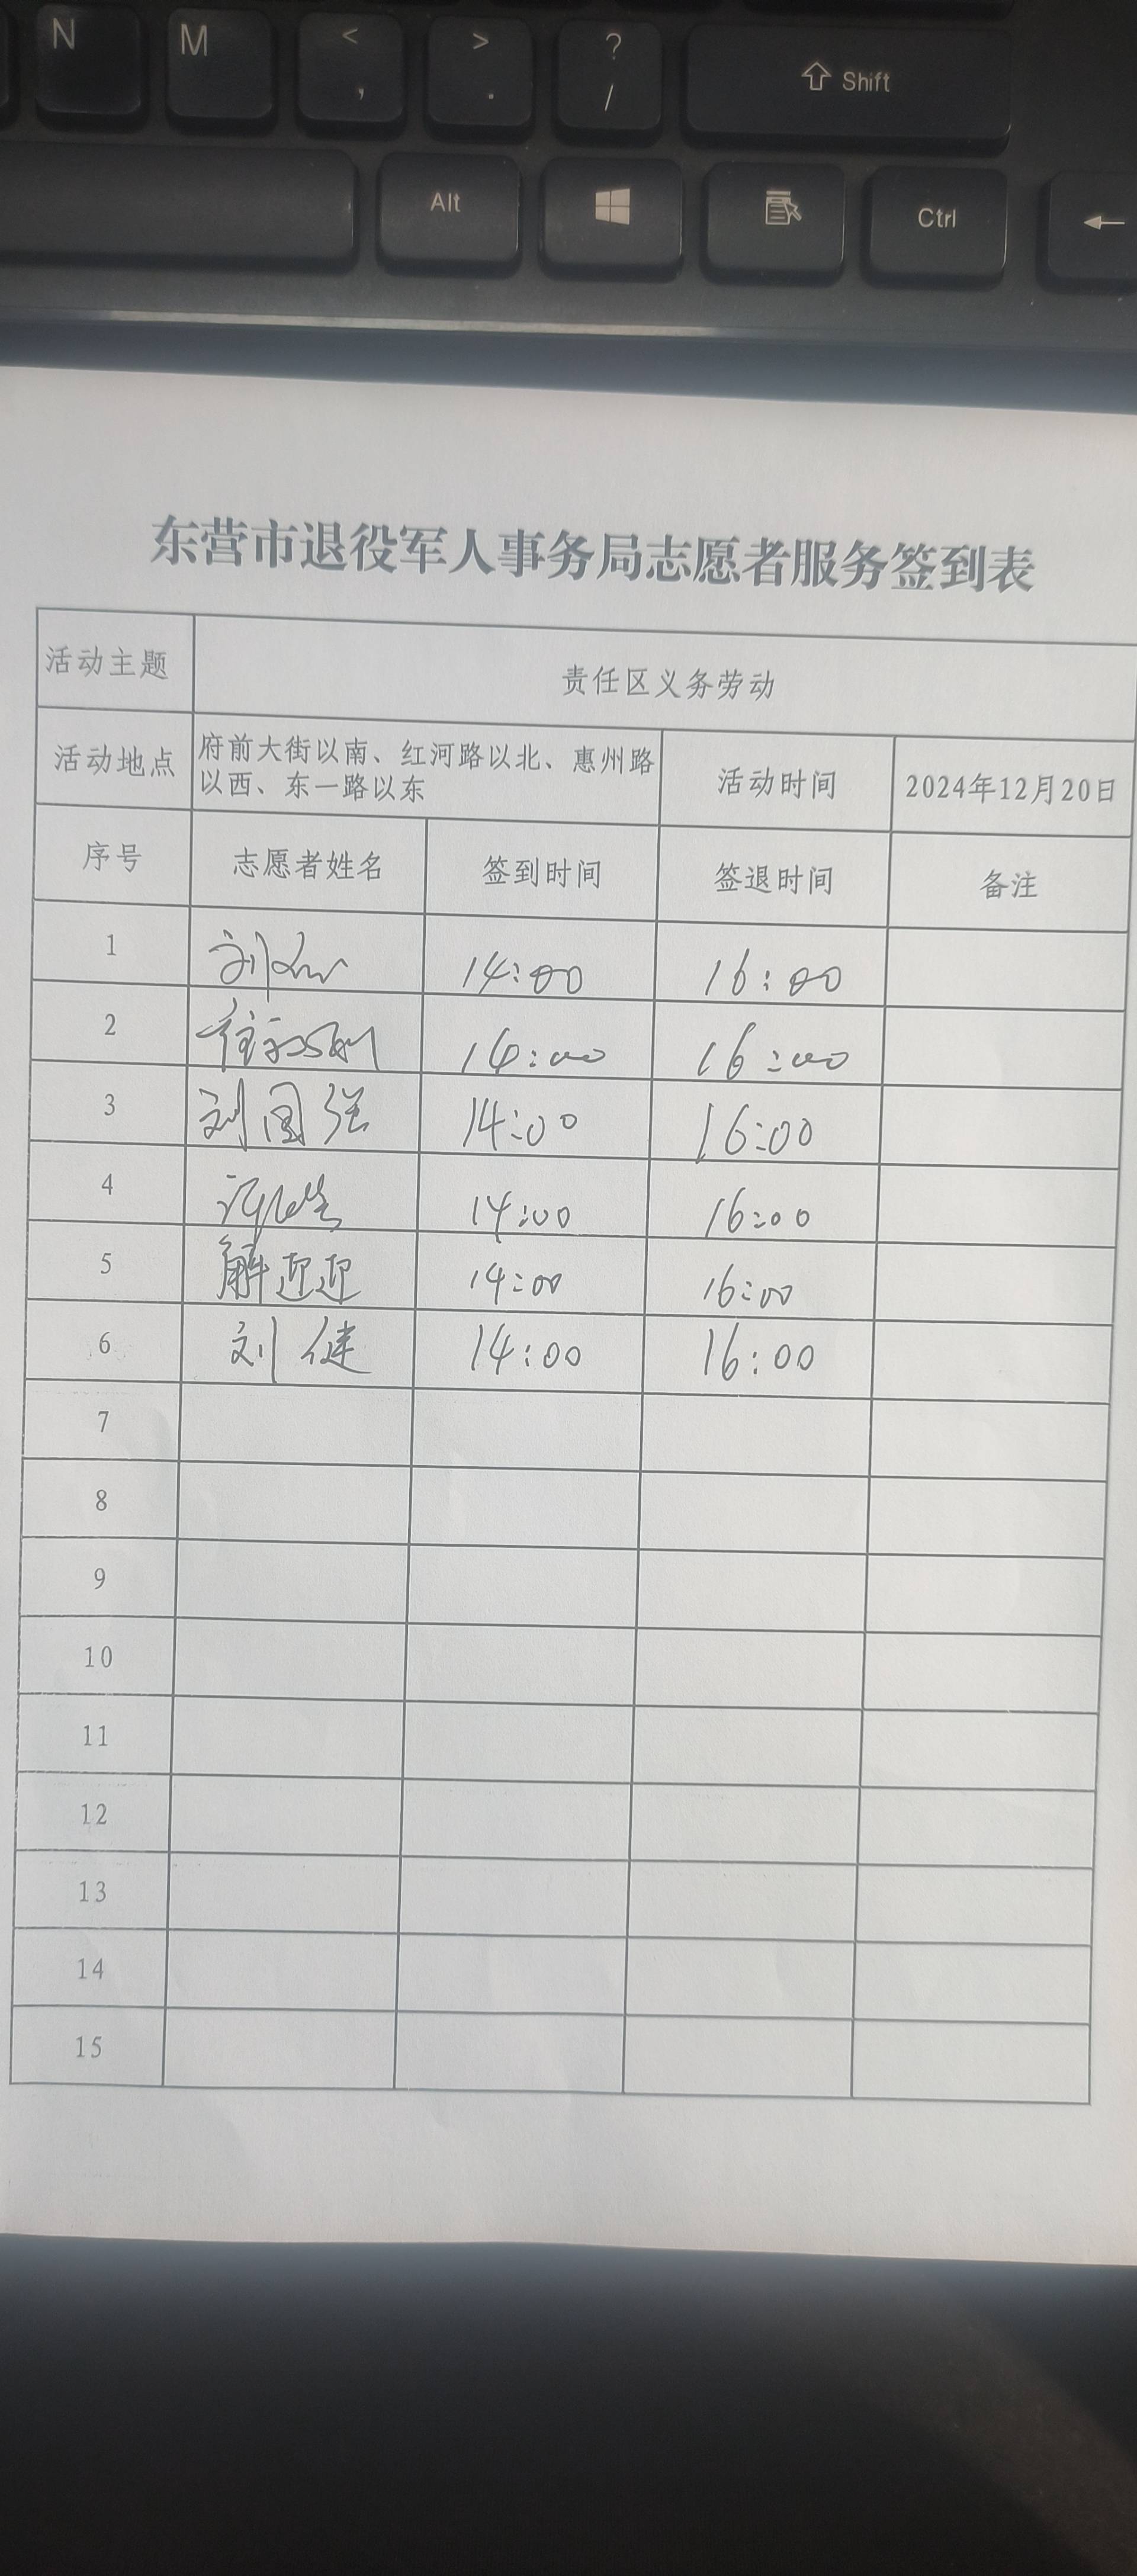 N M < , > . ? / Shift
Alt Ctrl ←
东营市退役军人事务局志愿者服务签到表
活动主题 责任区义务劳动
活动地点 府前大街以南、红河路以北、惠州路
以西、东一路以东 活动时间 2024年12月20日
序号 志愿者姓名 签到时间 签退时间 备注
1 刘 14:00 16:00
2 14:00 16:00
3 刘国强 14:00 16:00
4 14:00 16:00
5 解迎迎 14:00 16:00
6 刘健 14:00 16:00
7
8
9
10
11
12
13
14
15